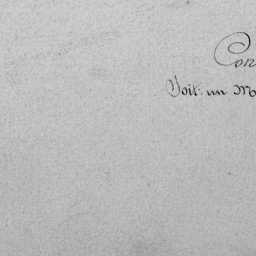 Con
Soit un M